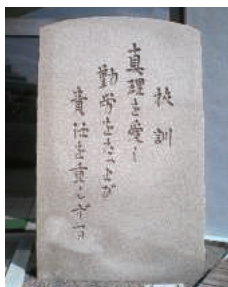 校訓
真理を愛し
勤労をたっとび
責任を重んずべし